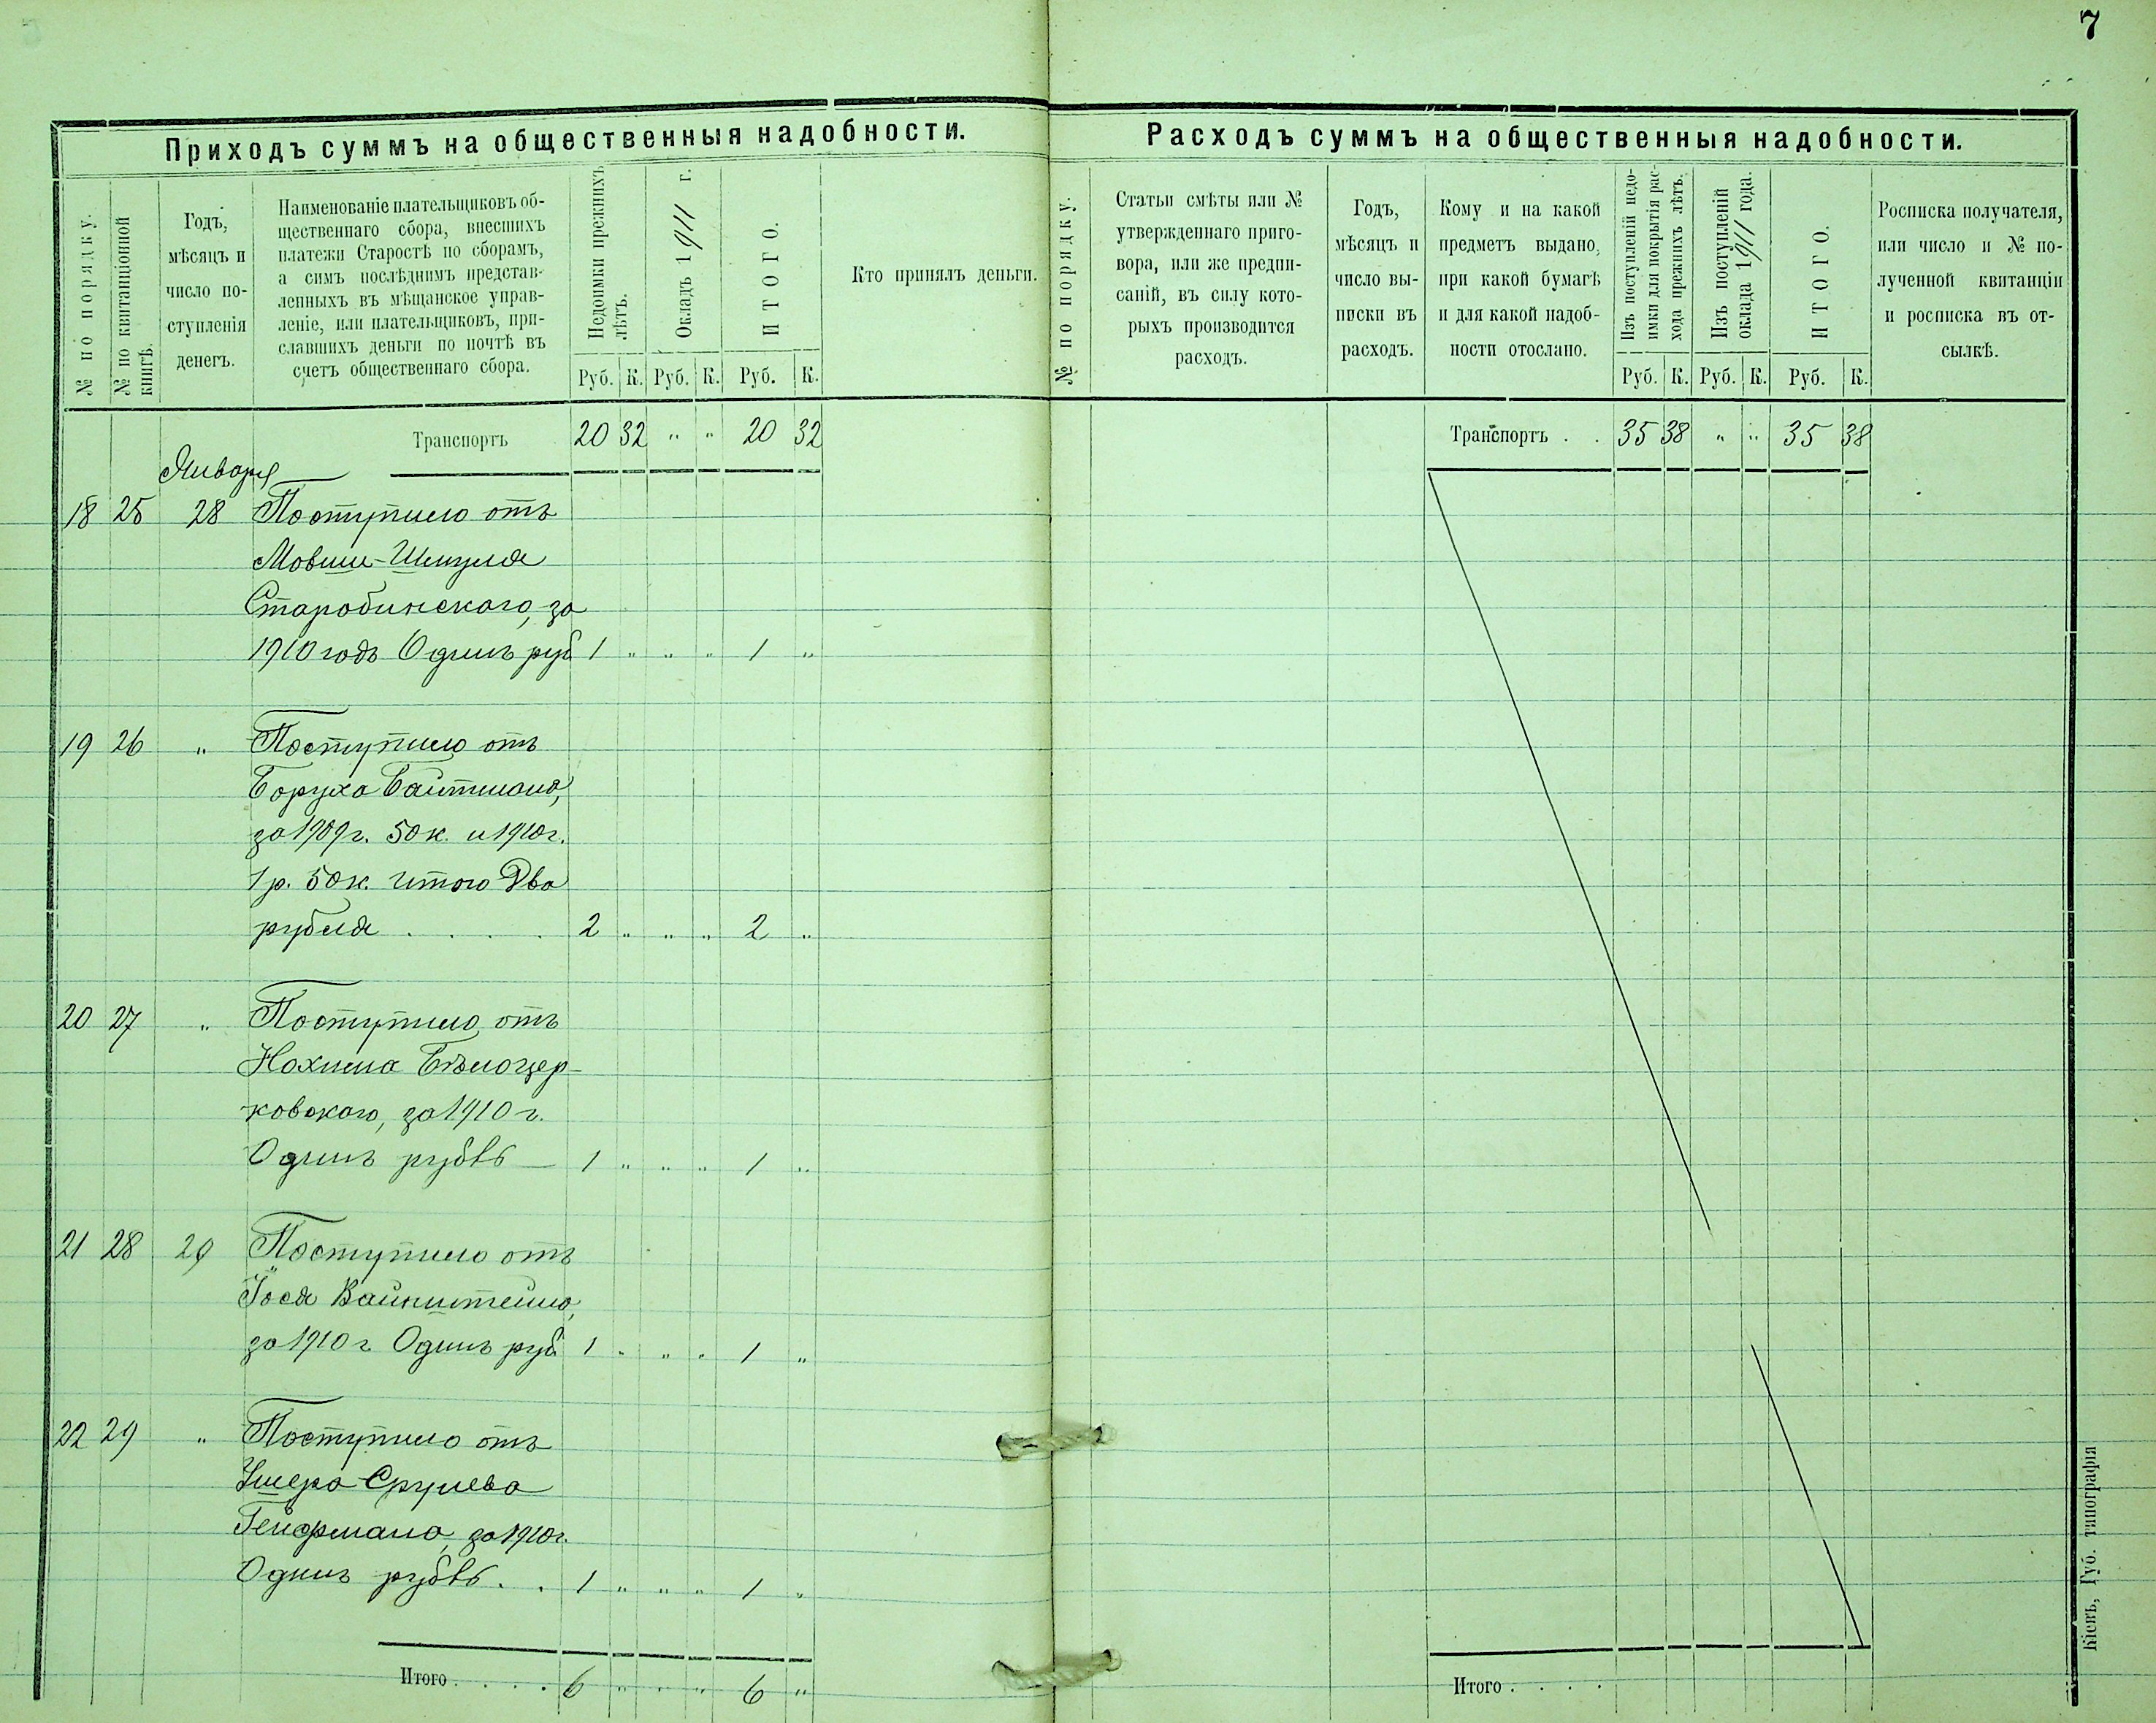 7
Приходъ суммъ на общественныя надобности.
№ по порядку.
№ по квитанціонной
книгѣ.
Годъ,
мѣсяцъ и
число по-
ступленія
денегъ.
Наименованіе плательщиковъ об-
щественнаго сбора, внесшихъ
платежи Старостѣ по сборамъ,
а симъ послѣднимъ представ-
ленныхъ въ мѣщанское управ-
леніе, или плательщиковъ, при-
славшихъ деньги по почтѣ въ
счетъ общественнаго сбора.
Недоимки прежнихъ
лѣтъ.
Окладъ 1911 г.
ИТОГО.
Руб. К. Руб. К. Руб. К.
Кто принялъ деньги.
Транспортъ 20 32 " " 20 32
Января
18 25 28 Поступило отъ
Мовши-Шмуля
Старобинскаго, за
1910 годъ Одинъ руб 1 " " " 1 "
19 26 " Поступило отъ
Боруха Байтмана,
за 1909 г. 50 к. и 1910 г.
1 р. 50 к. итого Два
рубля . . . . 2 " " " 2 "
20 27 " Поступило отъ
Нохима Бѣлоцер-
ковскаго, за 1910 г.
Одинъ рубль — 1 " " " 1 "
21 28 29 Поступило отъ
Іося Вайнштейна,
за 1910 г. Одинъ руб 1 " " " 1 "
22 29 " Поступило отъ
Ушера Срулева
Гейфмана, за 1910 г.
Одинъ рубль . . 1 " " " 1 "
Итого . . . . 6 " " " 6 "
Расходъ суммъ на общественныя надобности.
№ по порядку.
Статьи смѣты или №
утвержденнаго приго-
вора, или же предпи-
саній, въ силу кото-
рыхъ производится
расходъ.
Годъ,
мѣсяцъ и
число вы-
писки въ
расходъ.
Кому и на какой
предметъ выдано,
при какой бумагѣ
и для какой надоб-
ности отослано.
Изъ поступленій недо-
имки для покрытія рас-
хода прежнихъ лѣтъ.
Изъ поступленій
оклада 1911 года.
ИТОГО.
Руб. К. Руб. К. Руб. К.
Росписка получателя,
или число и № по-
лученной квитанціи
и росписка въ от-
сылкѣ.
Транспортъ . . 35 38 " " 35 38
Итого . . . .
Кіевъ, Губ. типографія